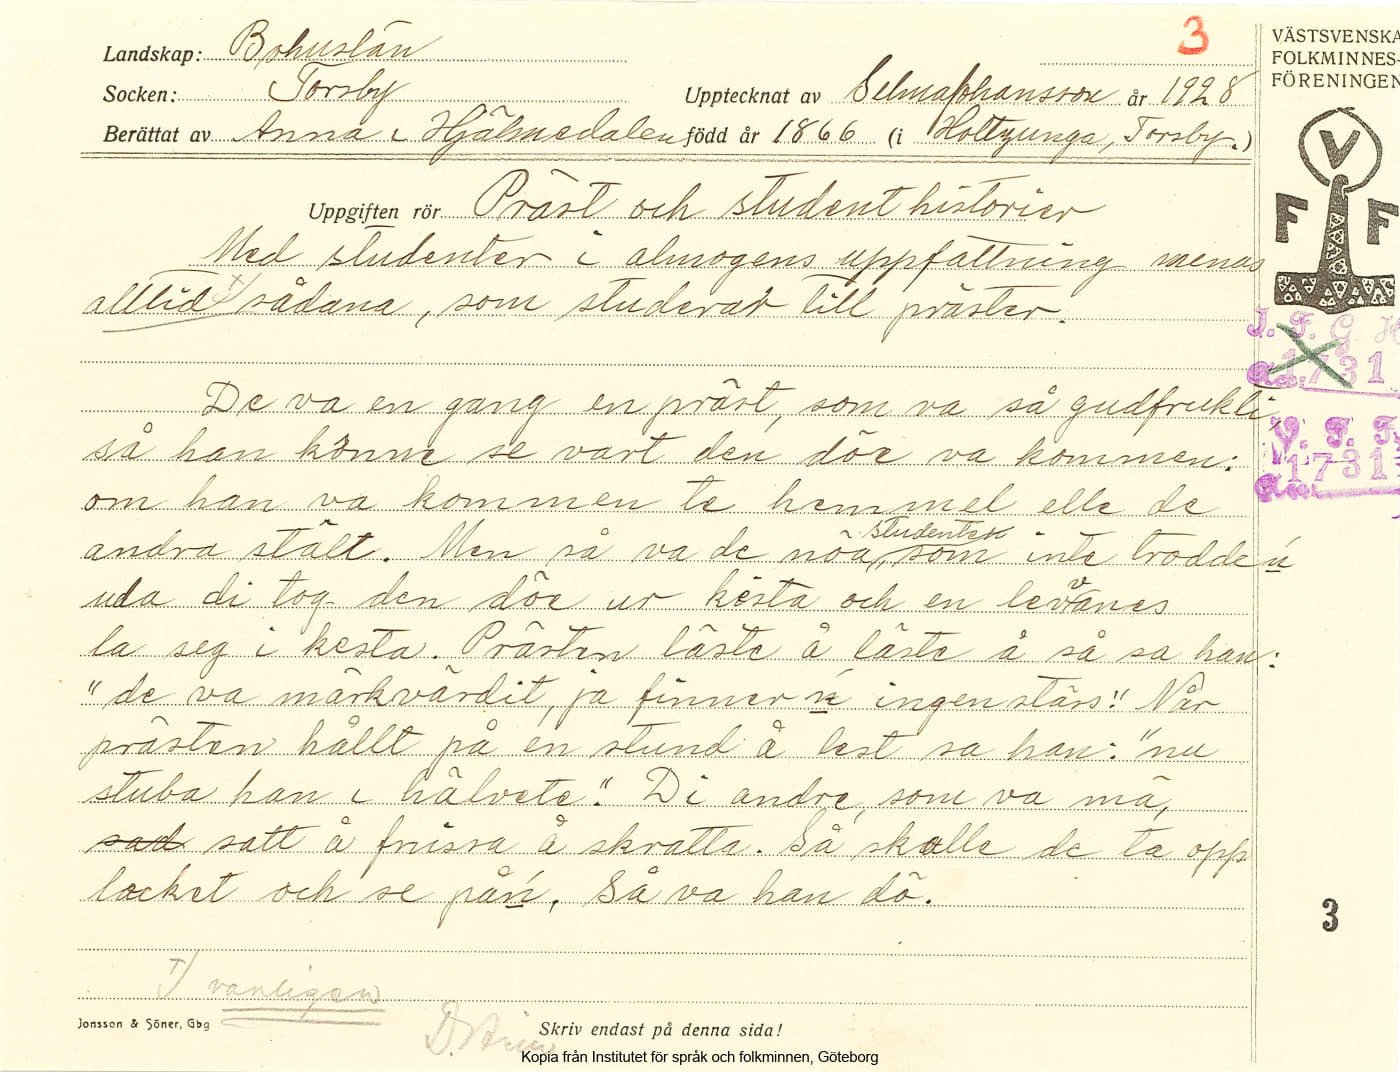 3
VÄSTSVENSKA
FOLKMINNES-
FÖRENINGEN
Landskap: Bohuslän
Socken: Torsby
Upptecknat av Selma Johansson år 1928
Berättat av Anna i Hjälmedalen född år 1866 (i Holtyunga, Torsby.)
V
F F
Uppgiften rör Präst och studenthistorier
Med studenter i almogens uppfattning menas
alltid sådana, som studerar till präster.
J. F. G. H
1731
De va en gang en präst, som va så gudfrukti,
så han könne se vart den döe va kommen:
V. F. F.
1731
om han va kommen te hemmel elle de
andra stält. Men så va de nöa studenter, som inte trodde'n
uda di tog den döe ur kesta och en levanes
la seg i kesta. Prästen läste å läste å så sa han:
"de va märkvärdit, ja finner'n ingenstärs". När
prästen hållt på en stund å lest sa han: "nu
stuba han i hälvete". Di andre, som va mä,
sad satt å frusra å skratta. Så skolle de ta opp
locket och se på'n. Så va han dö.
3
+) vanligen
Jonsson & Söner, Gbg
Skriv endast på denna sida!
Kopia från Institutet för språk och folkminnen, Göteborg